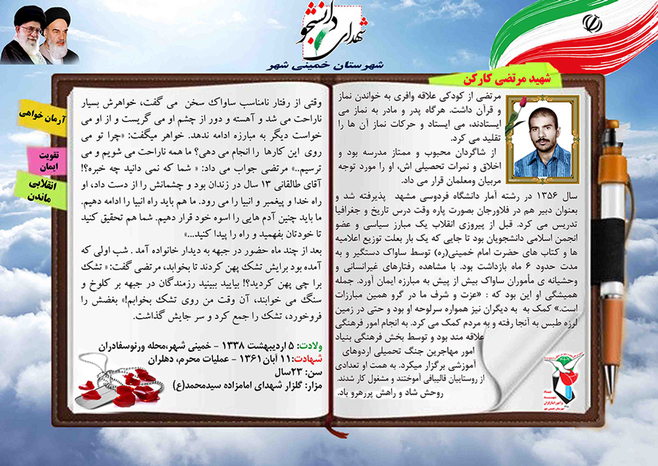 شهدای دانشجو
شهرستان خمینی شهر
شهید مرتضی کارکن
آرمان خواهی
تقویت
ایمان
انقلابی
ماندن
مرتضی از کودکی علاقه وافری به خواندن نماز
و قرآن داشت. هرگاه پدر و مادر به نماز می
ایستادند، می ایستاد و حرکات نماز آن ها را
تقلید می کرد.
از شاگردان محبوب و ممتاز مدرسه بود و
اخلاق و نمرات تحصیلی اش، او را مورد توجه
مربیان ومعلمان قرار می داد.
سال ۱۳۵۶ در رشته آمار دانشگاه فردوسی مشهد پذیرفته شد و
بعنوان دبیر هم در فلاورجان بصورت پاره وقت درس تاریخ و جغرافیا
تدریس می کرد. قبل از پیروزی انقلاب یک مبارز سیاسی و عضو
انجمن اسلامی دانشجویان بود تا جایی که یک بار بعلت توزیع اعلامیه
ها و کتاب های حضرت امام خمینی(ره) توسط ساواک دستگیر و به
مدت حدود ۶ ماه بازداشت بود. با مشاهده رفتارهای غیرانسانی و
وحشیانه ی مأموران ساواک بیش از پیش به مبارزه ایمان آورد. جمله
همیشگی او این بود که : «عزت و شرف ما در گرو همین مبارزات
است.» کمک به به دیگران نیز همواره سرلوحه او بود و حتی در زمین
لرزه طبس به آنجا رفته و به مردم کمک می کرد. به انجام امور فرهنگی
علاقه مند بود و توسط بخش فرهنگی بنیاد
امور مهاجرین جنگ تحمیلی اردوهای
آموزشی برگزار میکرد. به همت او تعدادی
از روستاییان قالیبافی آموختند و مشغول کار شدند.
روحش شاد و راهش پررهرو باد.
وقتی از رفتار نامناسب ساواک سخن می گفت، خواهرش بسیار
ناراحت می شد و آهسته و دور از چشم او می گریست و از او می
خواست دیگر به مبارزه ادامه ندهد. خواهر میگفت: «چرا تو می
روی این کارها را انجام می دهی؟ ما همه ناراحت می شویم و می
ترسیم...» مرتضی جواب می داد: « شما که نمی دانید چه خبره؟!
آقای طالقانی ۱۳ سال در زندان بود و چشمانش را از دست داد، او
راه خدا و پیغمبر و انبیا را می رود. ما هم باید راه انبیا را ادامه دهیم.
ما باید چنین آدم هایی را اسوه خود قرار دهیم. شما هم تحقیق کنید
تا خودتان بفهمید و راه را پیدا کنید...»
بعد از چند ماه حضور در جبهه به دیدار خانواده آمد . شب اولی که
آمده بود برایش تشک پهن کردند تا بخوابد، مرتضی گفت: « تشک
برا چی پهن کردید؟! بیایید ببینید رزمندگان در جبهه بر کلوخ و
سنگ می خوابند، آن وقت من روی تشک بخوابم!» بغضش را
فروخورد، تشک را جمع کرد و سر جایش گذاشت.
ولادت: ۵ اردیبهشت ۱۳۳۸ - خمینی شهر،محله ورنوسفادران
شهادت:۱۱ آبان ۱۳۶۱ - عملیات محرم، دهلران
سن: ۲۳سال
مزار: گلزار شهدای امامزاده سیدمحمد(ع)